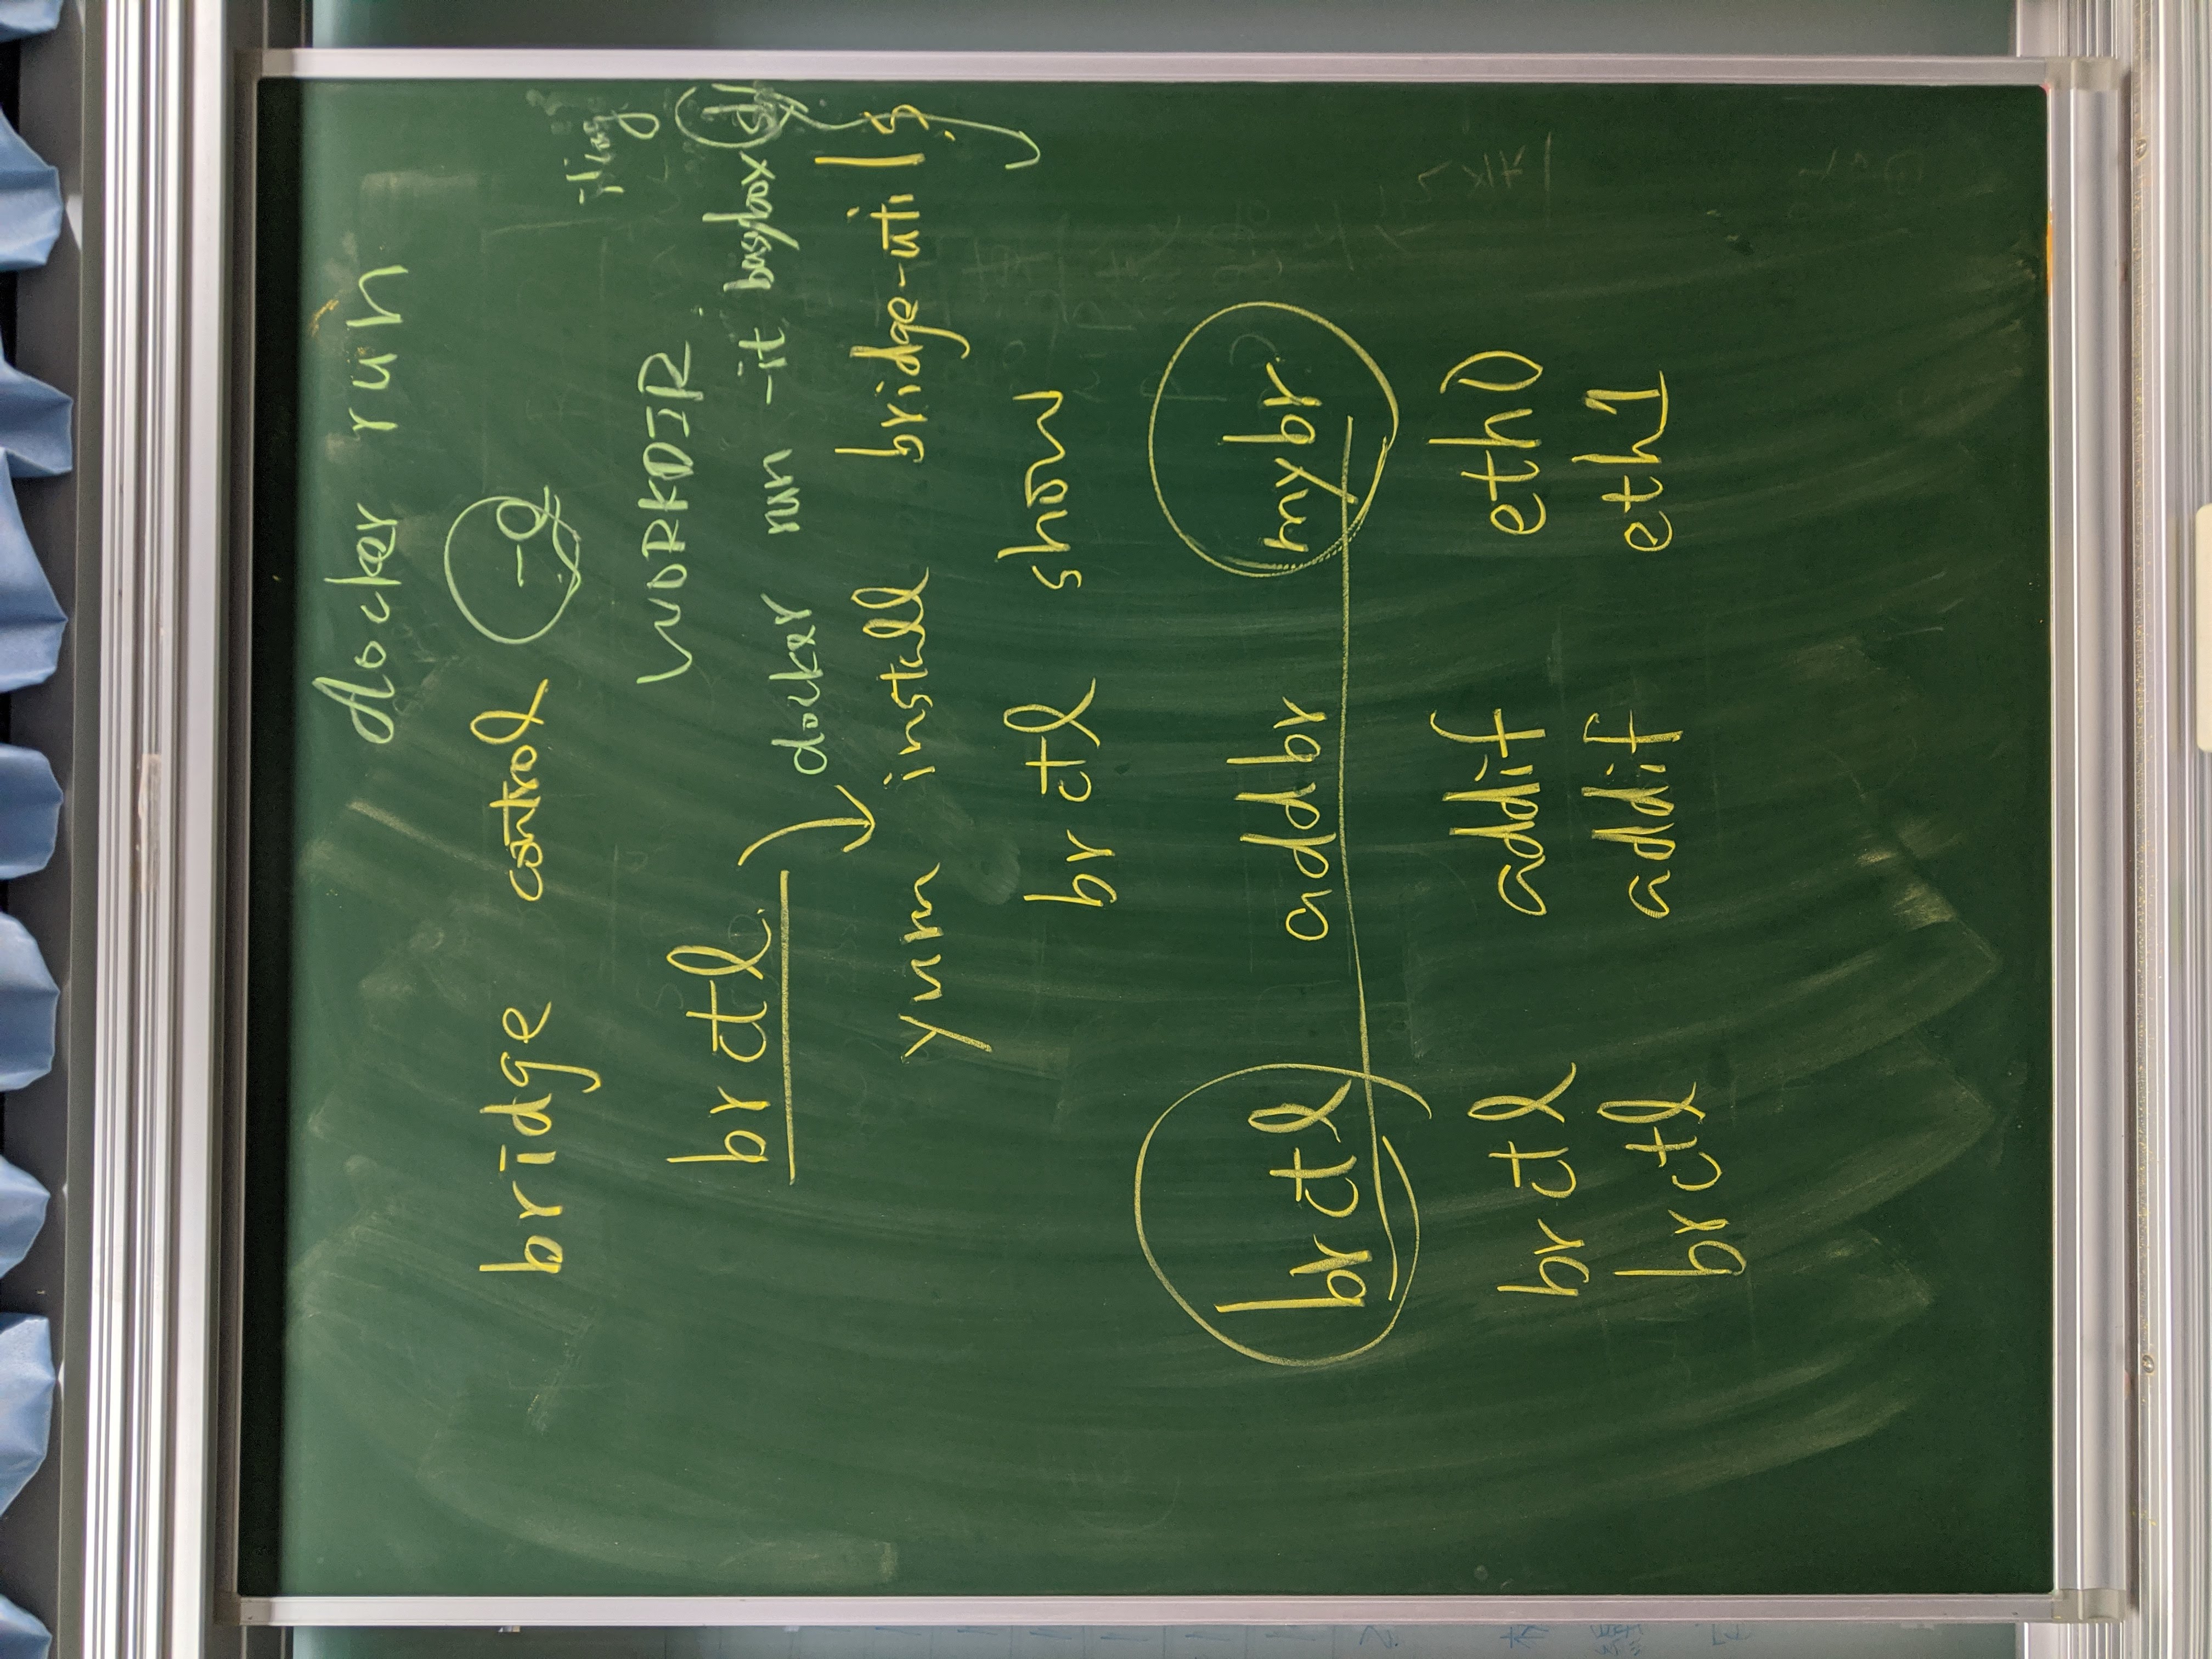 docker run
bridge control
WORKDIR
brctl
docker run -it busybox sh
yum install bridge-utils
brctl show
brctl addbr mybr
brctl addif eth0
brctl addif eth1